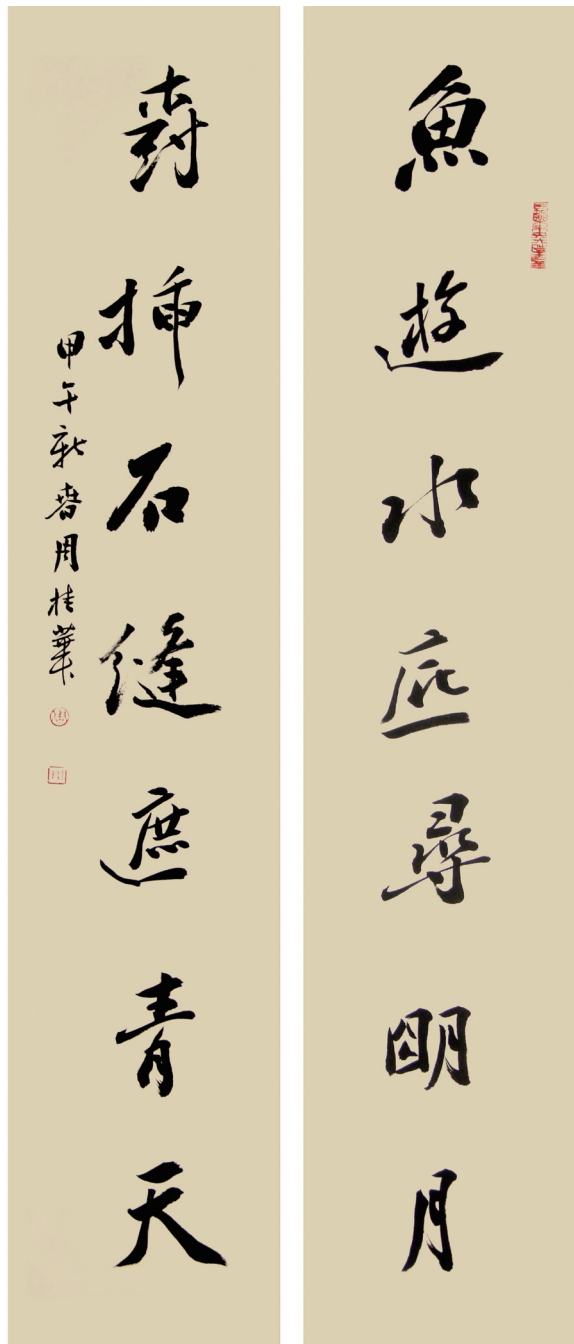 魚遊水底尋明月
樹插石縫遮青天
甲午新春周桂華